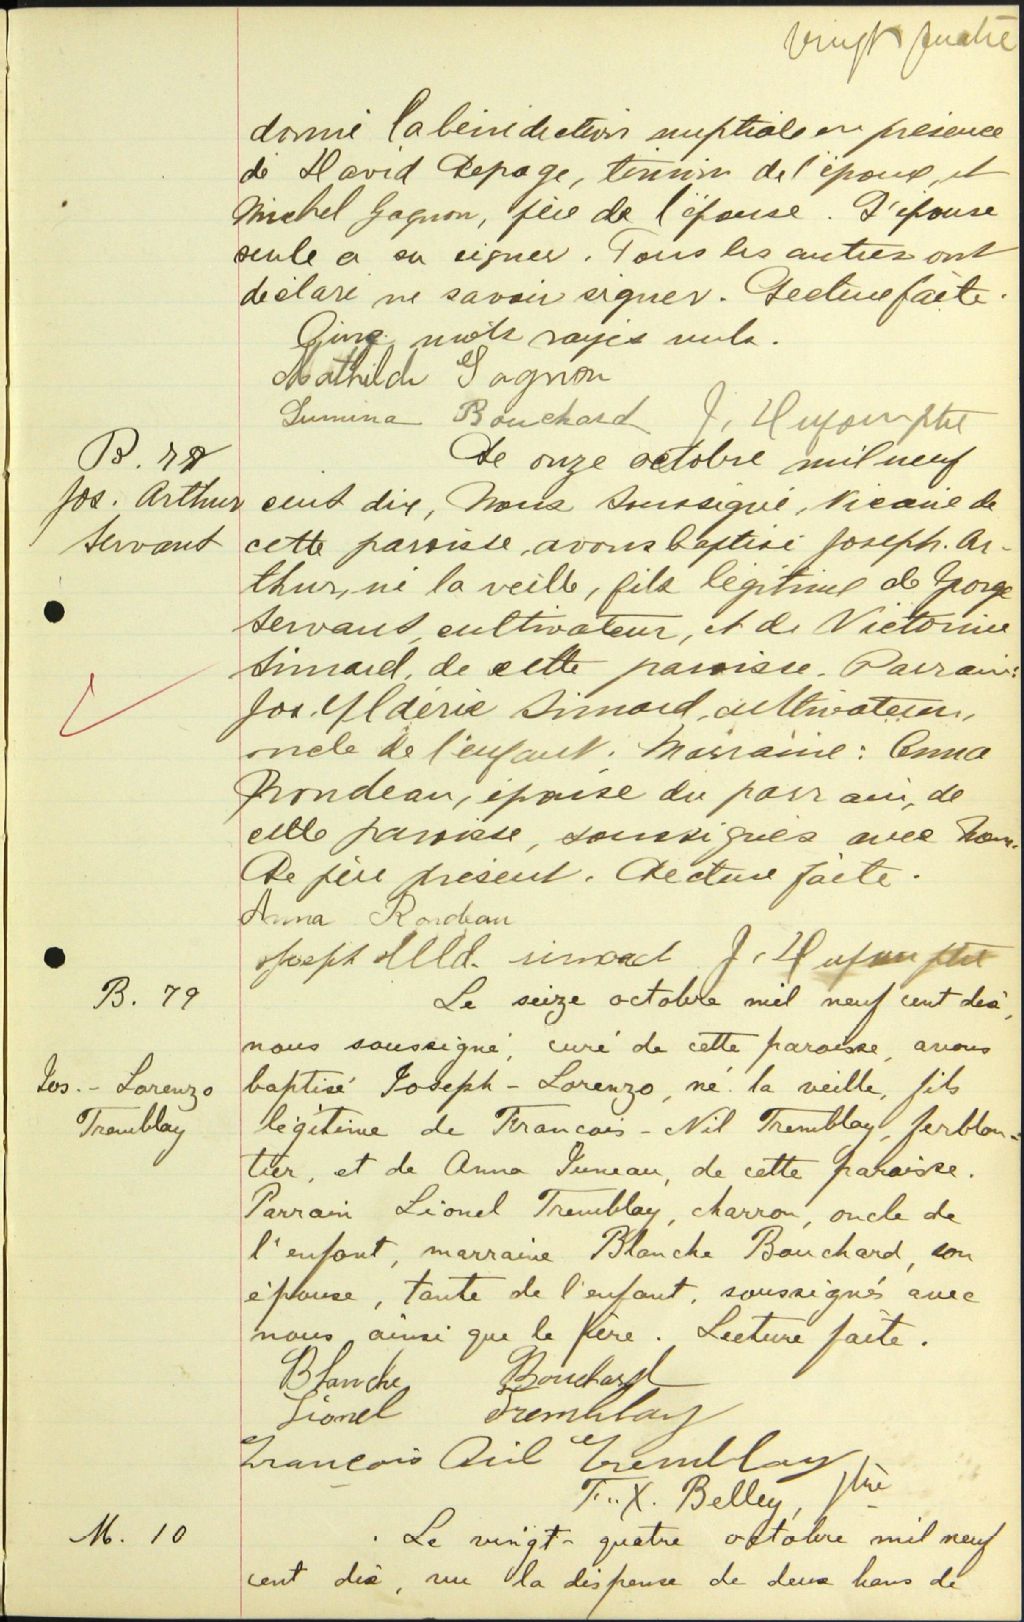 vingt quatre
donné la bénédiction nuptiale en présence
de David Lepage, témoin de l'époux, et
Michel Gagnon, père de l'épouse. L'épouse
seule a su signer. Tous les autres ont
déclaré ne savoir signer. Lecture faite.
Cinq mots rayés nuls.
Mathilde Gagnon
Lumina Bouchard J. Dufour ptre
B. 78
Le onze octobre mil neuf
Jos. Arthur
cent dix, Nous soussigné, Vicaire de
Servant
cette paroisse, avons baptisé Joseph. Ar-
thur, né la veille, fils légitime de George
Servant, cultivateur, et de Victorine
Simard, de cette paroisse. Parrain:
Jos. Aldéric Simard, cultivateur,
oncle de l'enfant. Marraine: Anna
Rondeau, épouse du parrain, de
cette paroisse, soussignés avec Nous.
Le père présent. Lecture faite.
Anna Rondeau
Joseph Ald. simard J. Dufour ptre
B. 79
Le seize octobre mil neuf cent dix,
nous soussigné, curé de cette paroisse, avons
Jos. - Lorenzo
baptisé Joseph - Lorenzo, né la veille, fils
Tremblay
légitime de François - Nil Tremblay, ferblan-
tier, et de Anna Juneau, de cette paroisse.
Parrain Lionel Tremblay, charron, oncle de
l'enfant, marraine Blanche Bouchard, son
épouse, tante de l'enfant, soussignés avec
nous ainsi que le père. Lecture faite.
Blanche Bouchard
Lionel Tremblay
François Nil Tremblay
F.-X. Belley, ptre
M. 10
Le vingt-quatre octobre mil neuf
cent dix, vu la dispense de deux bans de